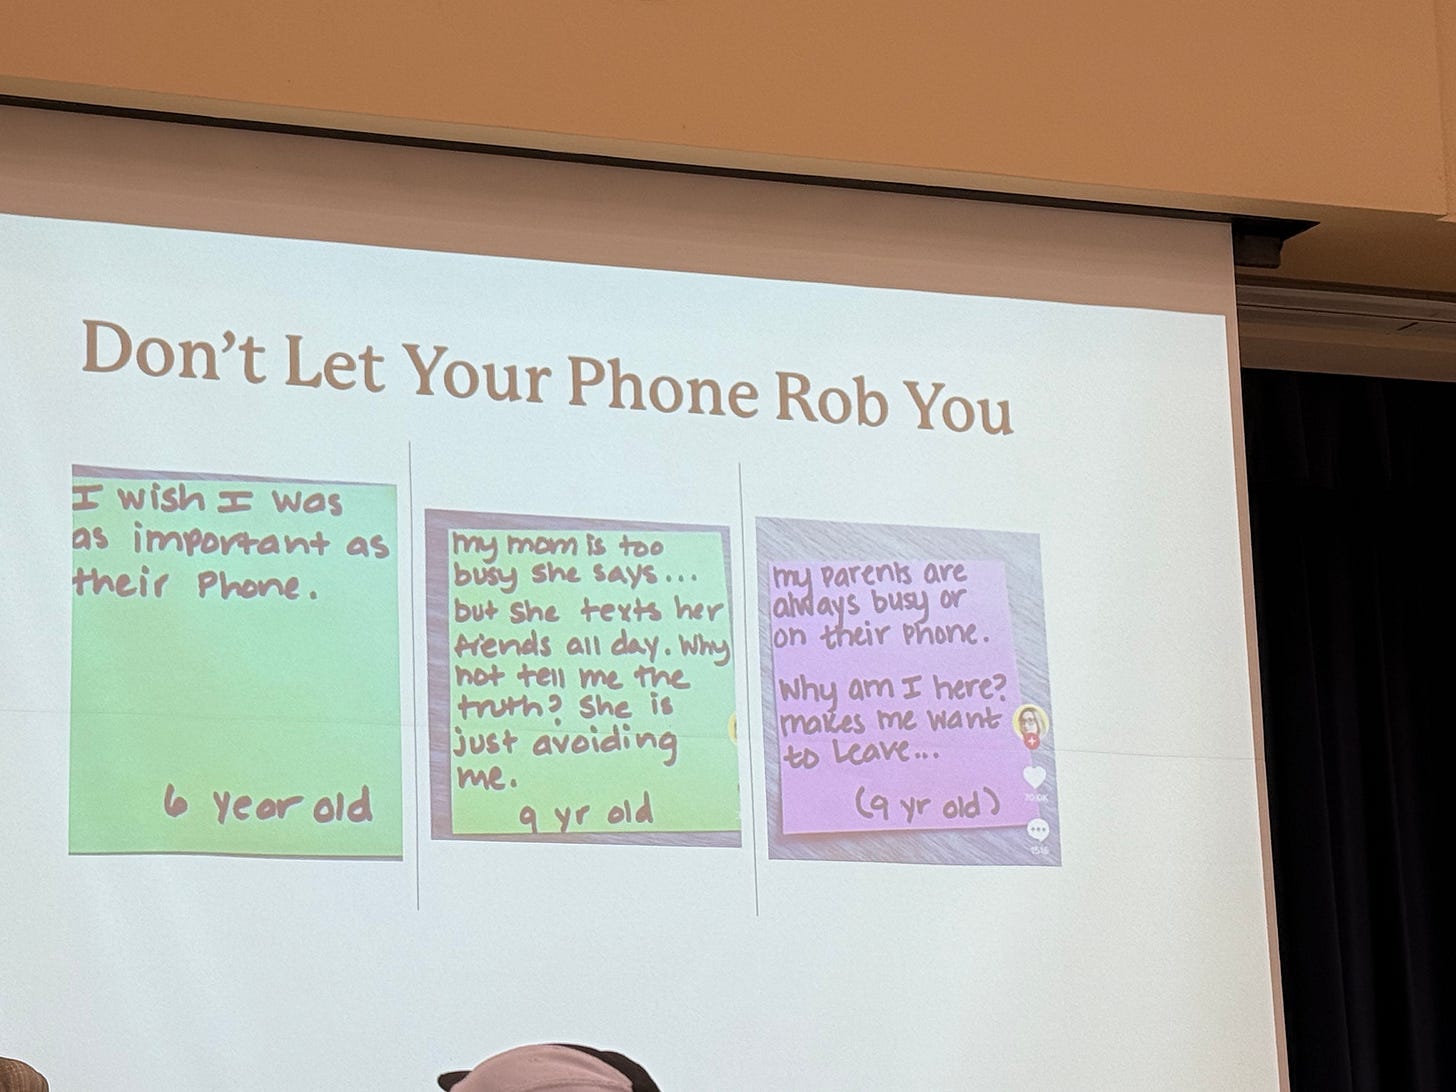 Don't Let Your Phone Rob You
I wish I was
as important as
their Phone.
6 year old
my mom is too
busy she says...
but she texts her
friends all day. Why
not tell me the
truth? She is
just avoiding
me.
9 yr old
my parents are
always busy or
on their phone.
Why am I here?
makes me want
to Leave...
(9 yr old)